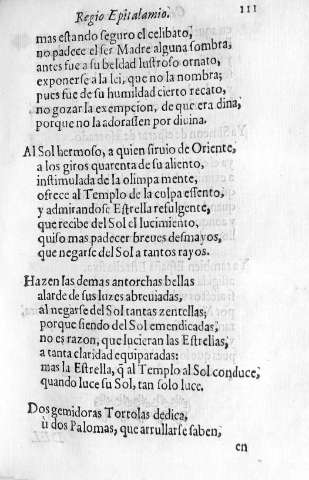 Regio Epitalamio. 111
mas estando seguro el celibato,
no padece el ser Madre alguna sombra,
antes fue a su beldad lustroso ornato,
exponerse a la lei, que no la nombra;
pues fue de su humildad cierto recato,
no gozar la exempcion, de que era dina,
porque no la adorassen por diuina.
Al Sol hermoso, a quien siruio de Oriente,
a los giros quarenta de su aliento,
instimulada de la olimpa mente,
ofrece al Templo de la culpa essento,
y admirandose Estrella refulgente,
que recibe del Sol el lucimiento,
quiso mas padecer breues desmayos,
que negarse del Sol a tantos rayos.
Hazen las demas antorchas bellas
alarde de sus luzes abreuiadas,
al negarse del Sol tantas zentellas;
porque siendo del Sol emendicadas,
no es razon, que lucieran las Estrellas,
a tanta claridad equiparadas:
mas la Estrella, q̃ al Templo al Sol conduce,
quando luce su Sol, tan solo luce.
Dos gemidoras Tortolas dedica,
ù dos Palomas, que arrullarse saben,
en